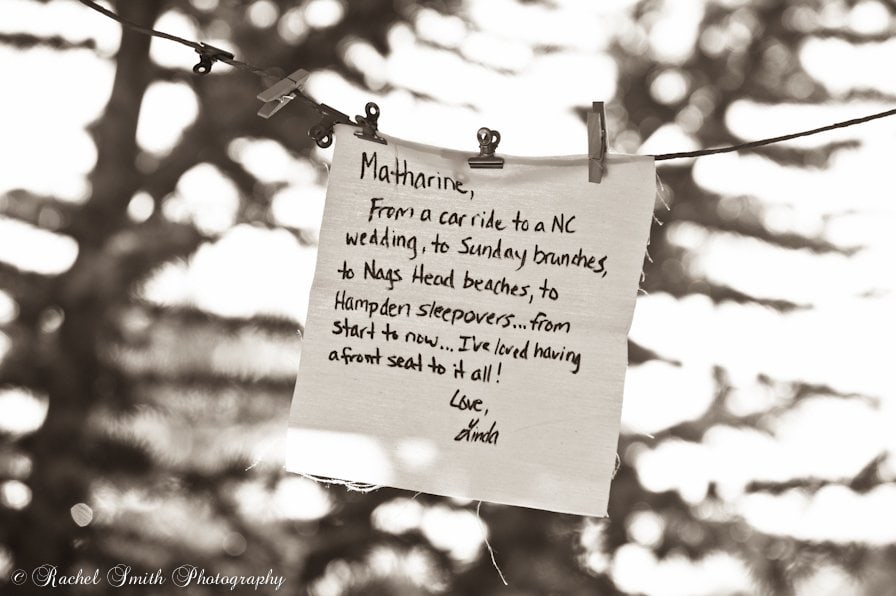 Matharine,
From a car ride to a NC
wedding, to Sunday brunches,
to Nags Head beaches, to
Hampden sleepovers... from
start to now... I've loved having
a front seat to it all!
Love,
Linda
© Rachel Smith Photography